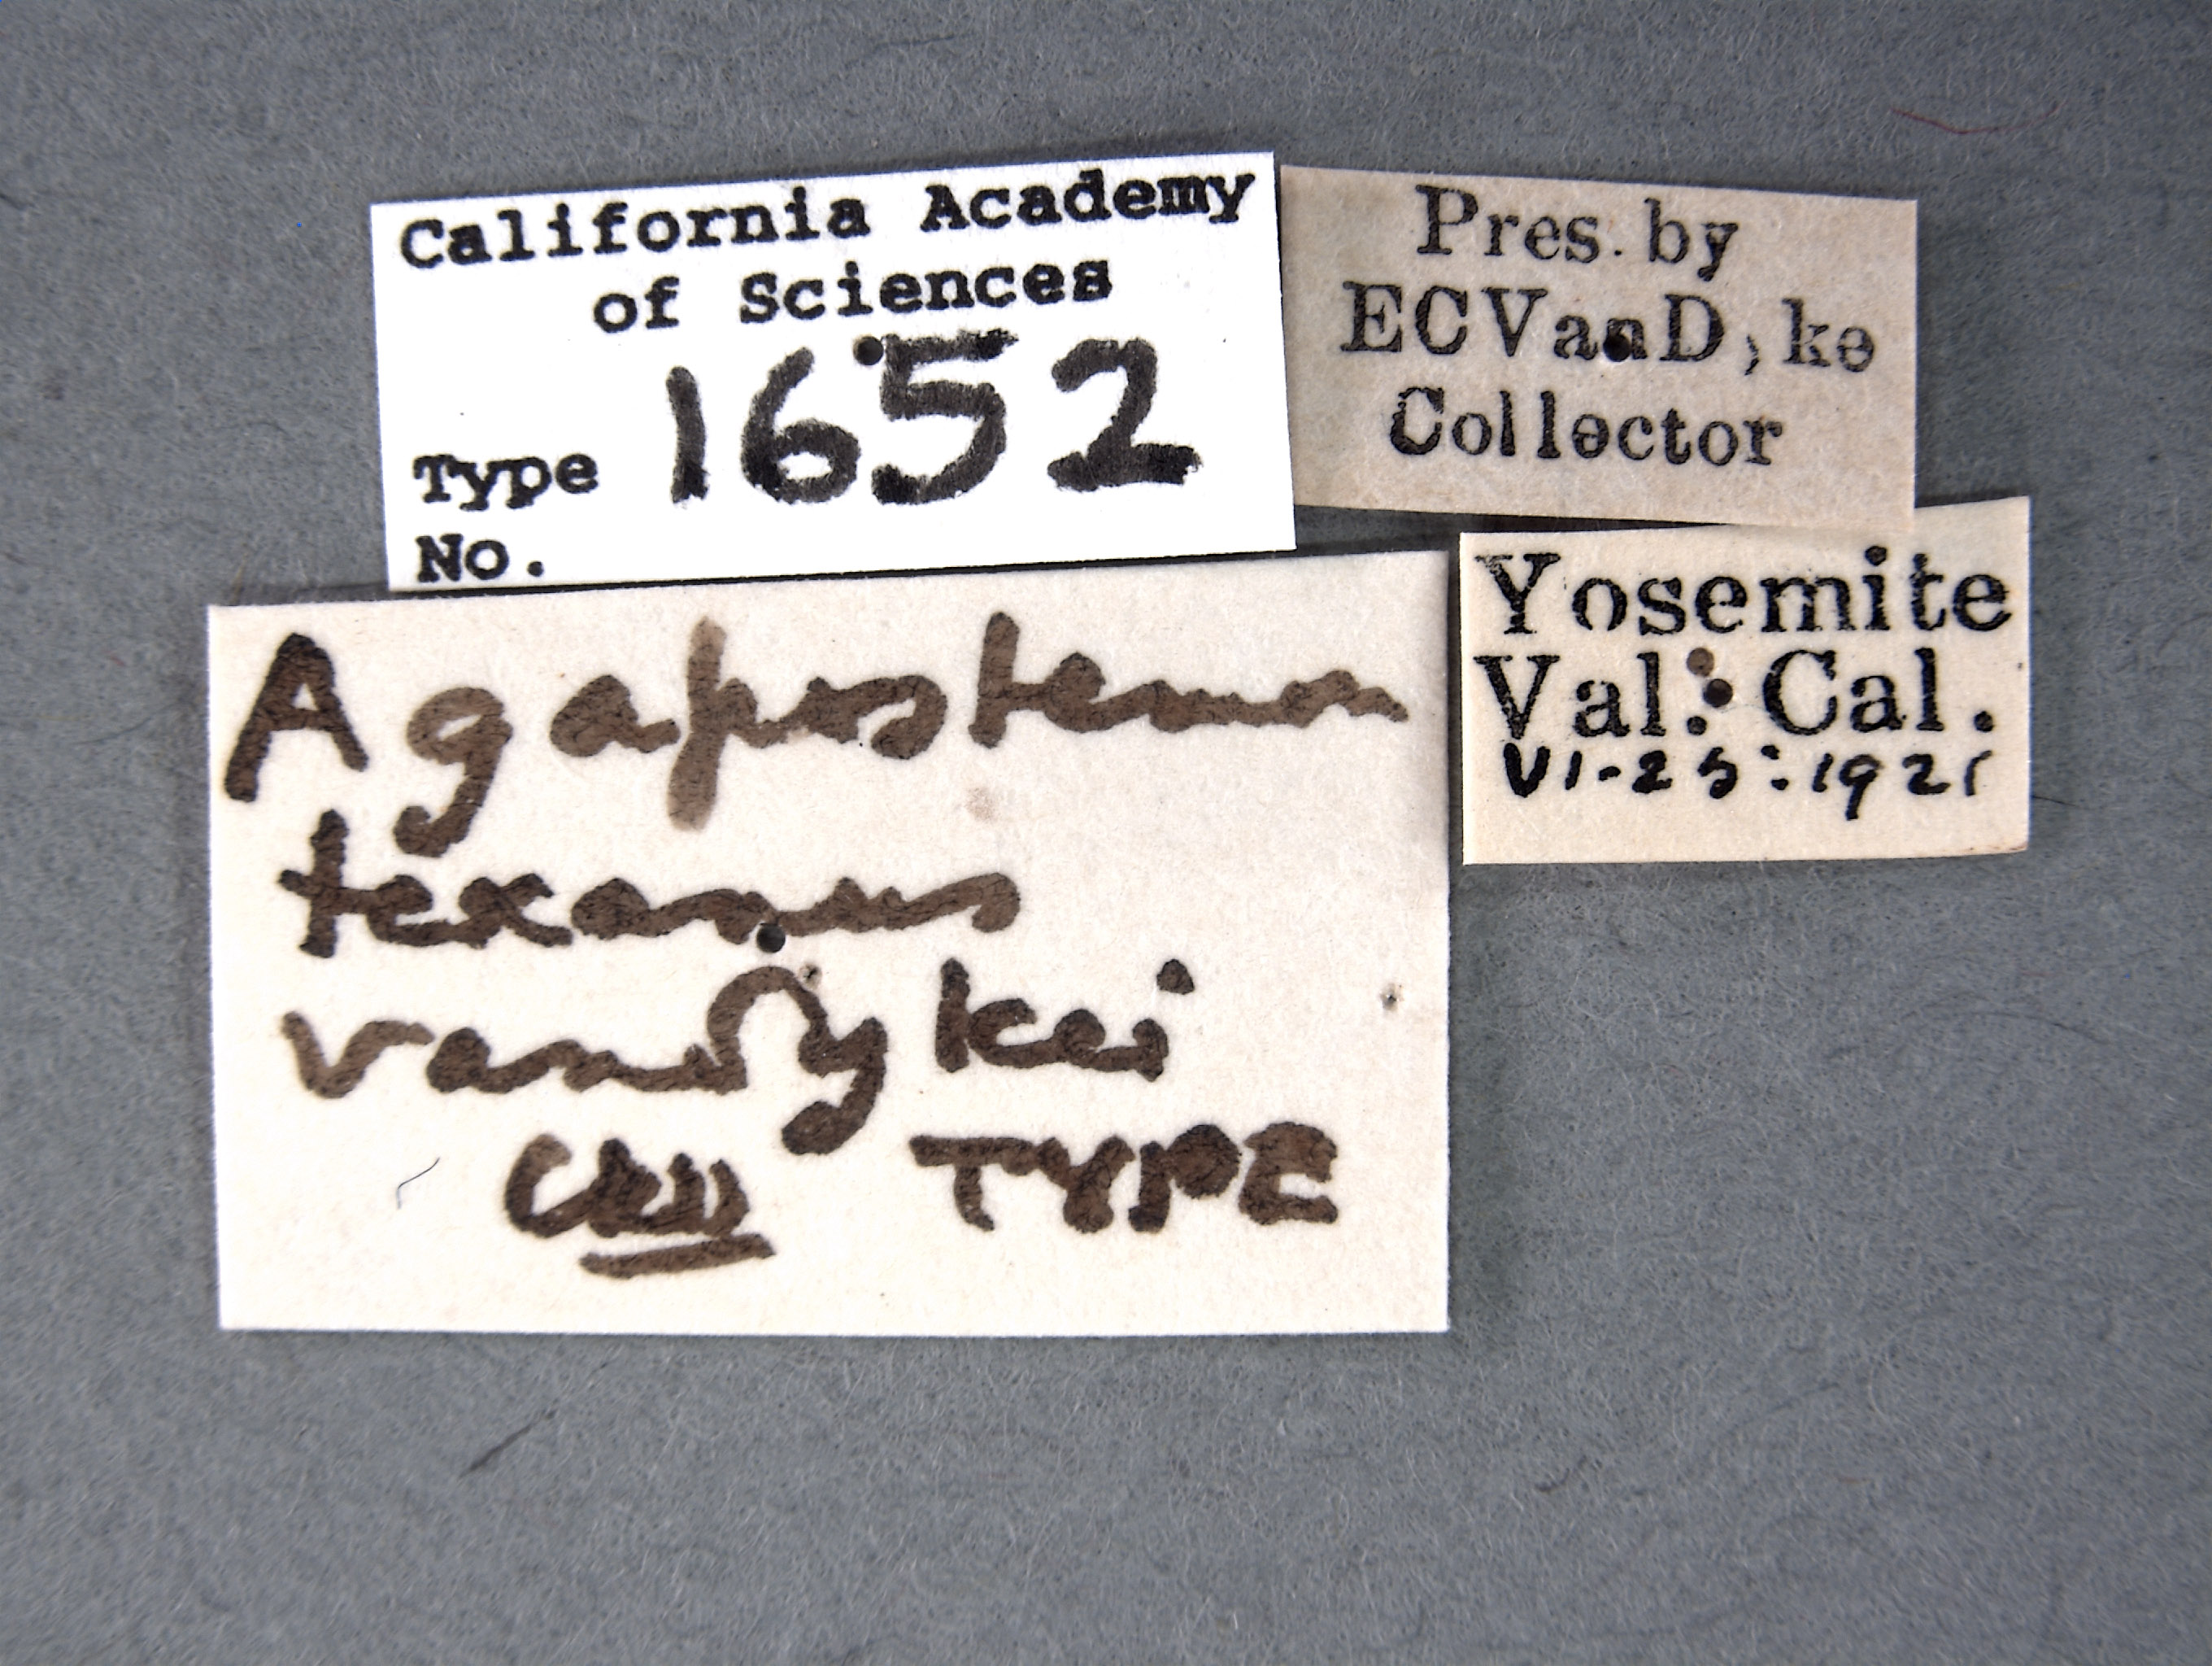 California Academy
of Sciences
Type 1652
No.
Pres. by
ECVanDyke
Collector
Yosemite
Val. Cal.
VI-25-1921
Agapostemon
texanus
vandykei
Ckll TYPE